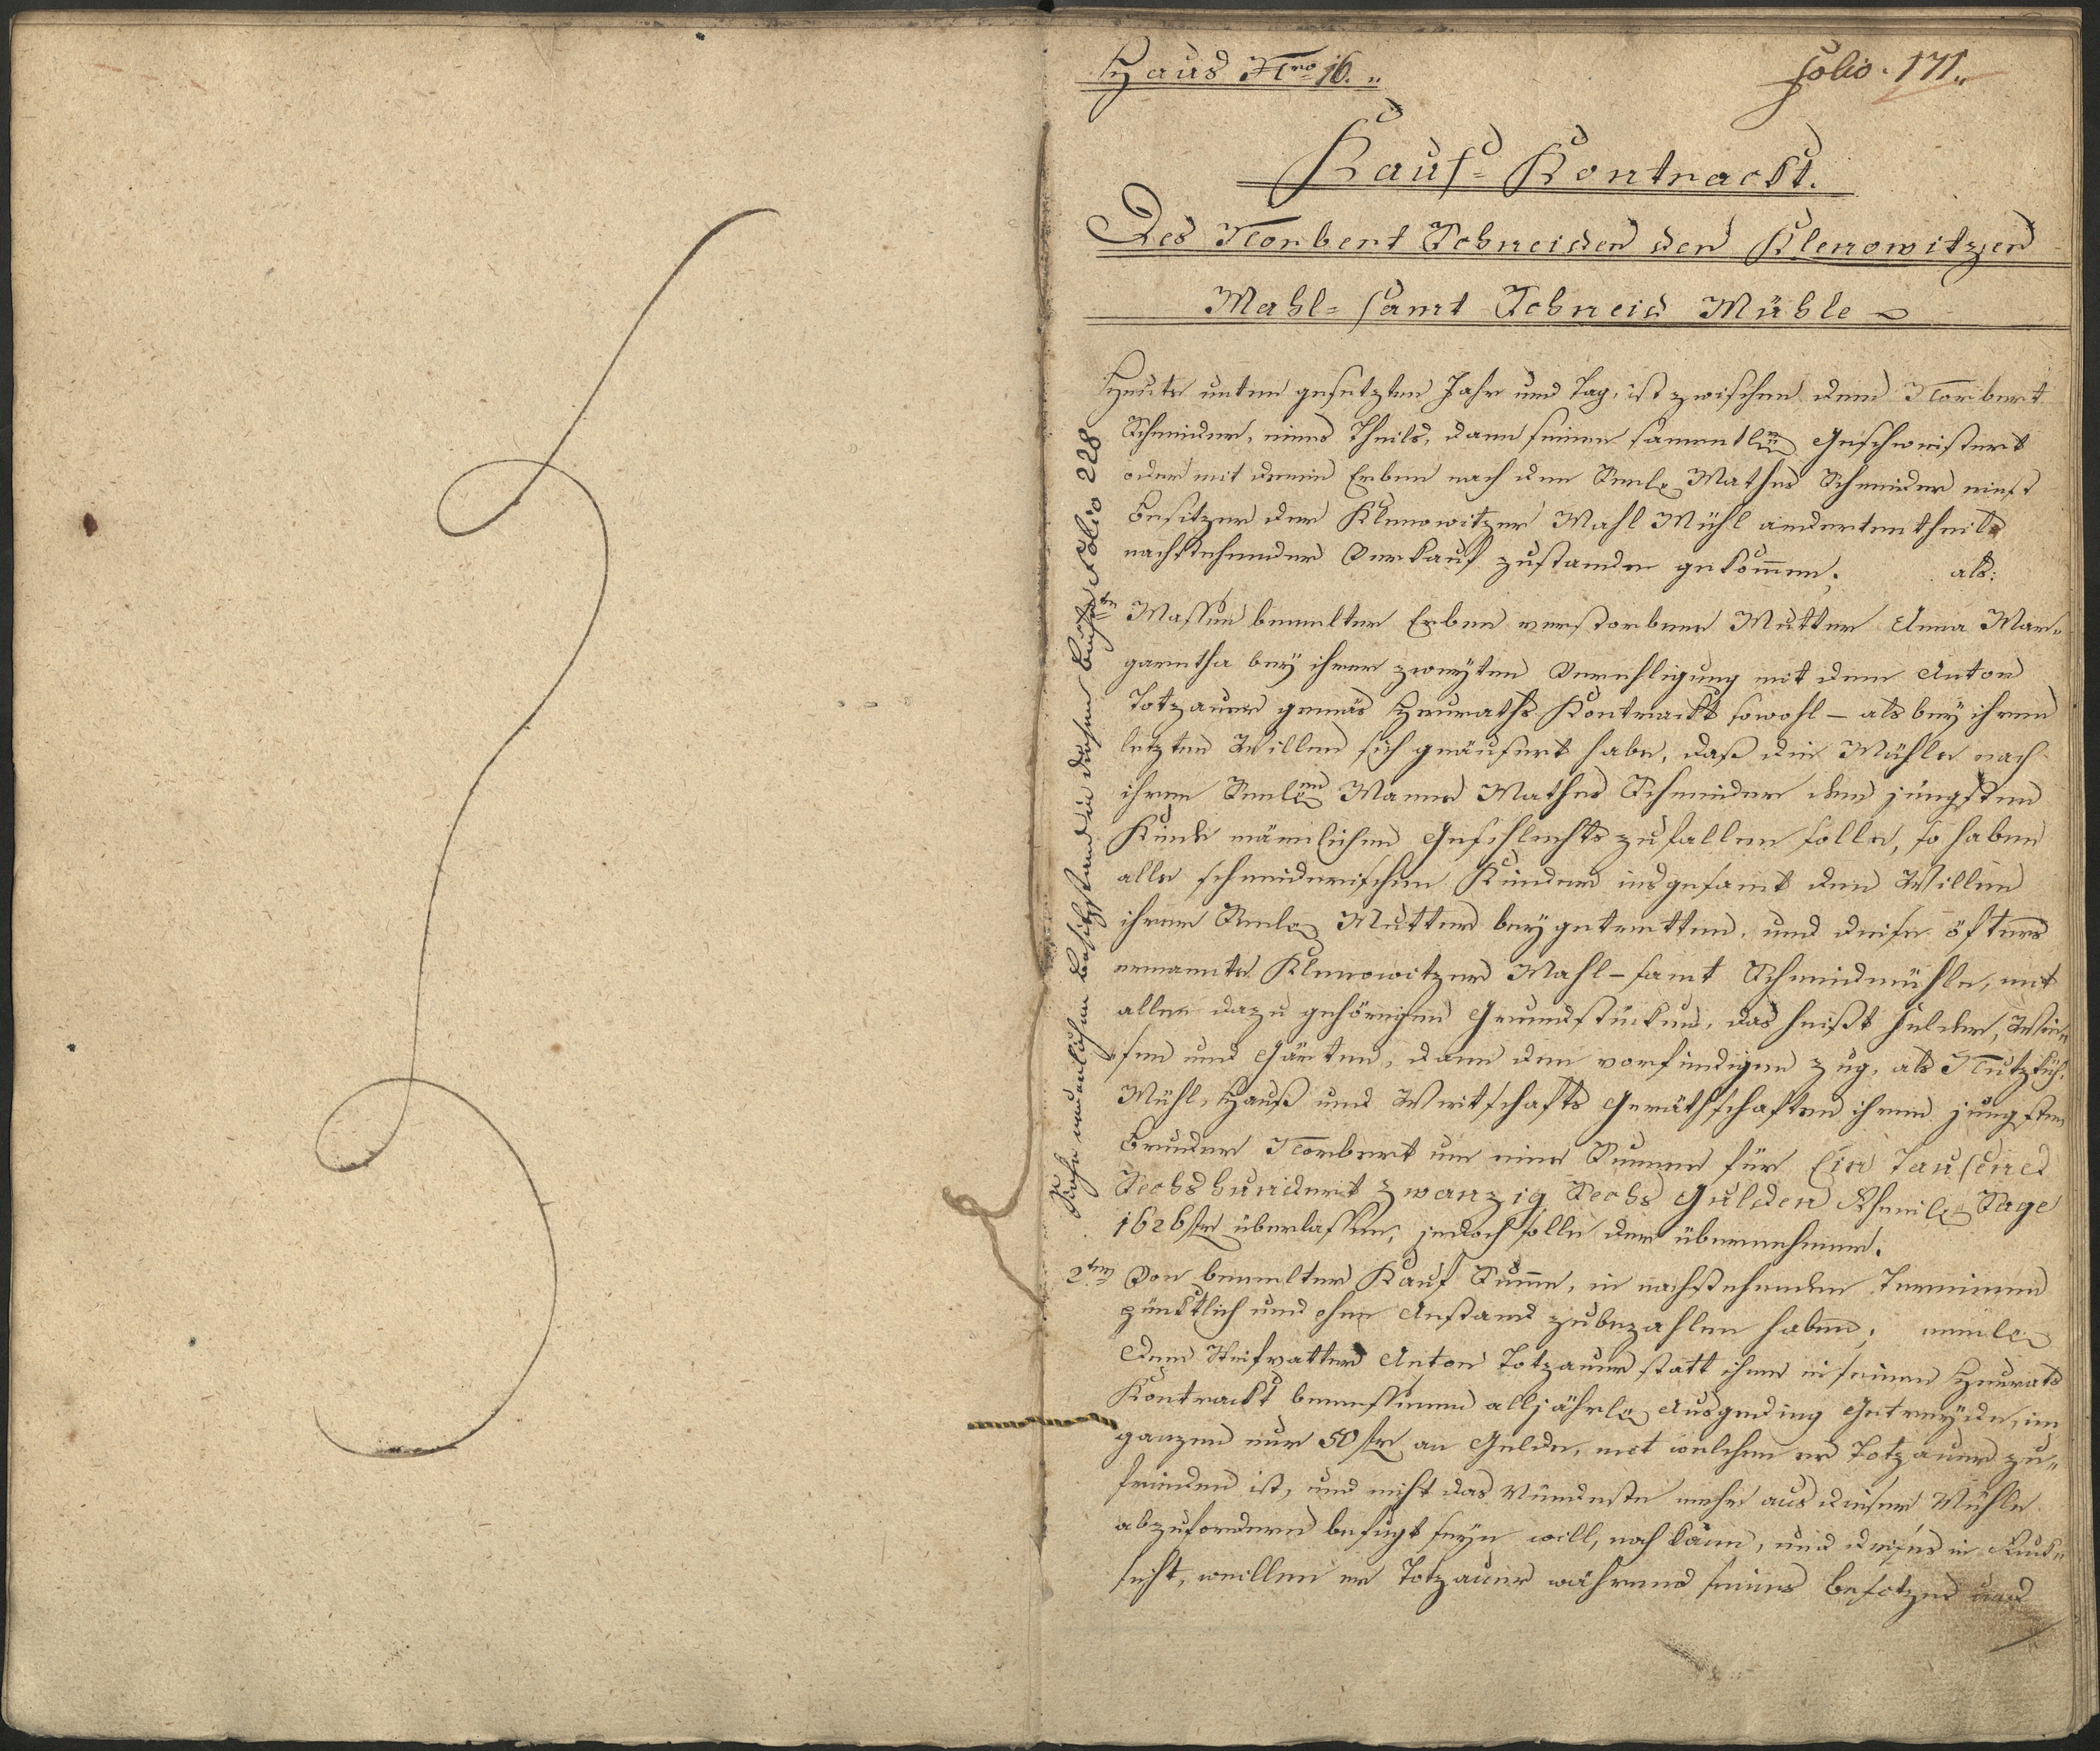 Haus Nro 16.
Folio. 171.
Kauf-Kontrackt.
Des Norbert Schneider der Klenowitzer
Mahl- samt Schneid Mühle
Heute unten gesetzten Jahr und Tag, ist zwischen dem Norbert
Schneider, eines Theils, dann seinen sammentlen Geschwistert
oder mit denen Erben nach dem Seele Mathes Schneider
Besitzer der Klenowitzer Mahl Mühl anderten theils
nachstehender Verkauf zustande gekommen; als:
Massen bemelter Erben verstorbene Mutter Anna Mar„
garetha bey ihrer zweyten Verehligung mit dem Anton
Totzauer gemäs Heuraths Kontrackt sowohl – als bey ihren
letzten Willen sich geäusert habe, daß die Mühle nach
ihren Seelen Manne Mathes Schneider dem jüngsten
Kinde mänlichen Geschlechts zufallen solle, so haben
alle schneiderischen Kinder insgesamt den Willen
ihrer Seele Mutter beygetretten, und diese öfters
ernannte Klenowitzer Mahl-samt Schneidmühle, mit
allen dazu gehörigen Grundstücken, das heißt Felder, Wie„
sen und Gärten, dann den vorfindigen Zug, als Nutzküh,
Mühl, Hauß und Wirtschafts Geräthschaften ihren jüngsten
Bruder Norbert um eine Summe für Ein Tausend
Sechshundert zwanzig Sechs Gulden Rheinl. Sage
1626 fr überlassen, jedoch solle der übernehmer.
2ten Von bemelter Kauf Summe, in nachstehenden Terminen
pünktlich und ohne Anstand zubezahlen haben;
Dem Stiefvatter Anton Totzauer statt ihme in seinen Heurats
Kontrackt bemessenen alljährle Ausgeding Getreyde, im
ganzen nur 50 fr an Gelde, mit welchen er Totzauer zu„
frieden ist, und nicht das Mündeste mehr aus dieser Mühle
abzufordern befugt seyn will, noch kann, und dieses in Ruck„
sicht, weillen er Totzauer während seines besetzes und
Siehe neuerlichen Besitzstand in diesem Buche Folio 228